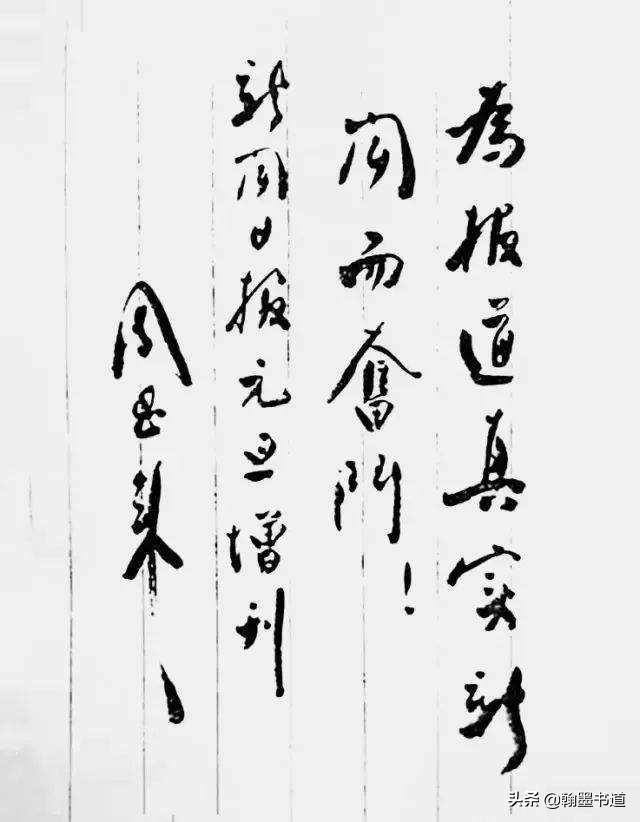 為报道真实新
闻而奮鬥！
新闻日报元旦增刊
周恩来
头条 @翰墨书道